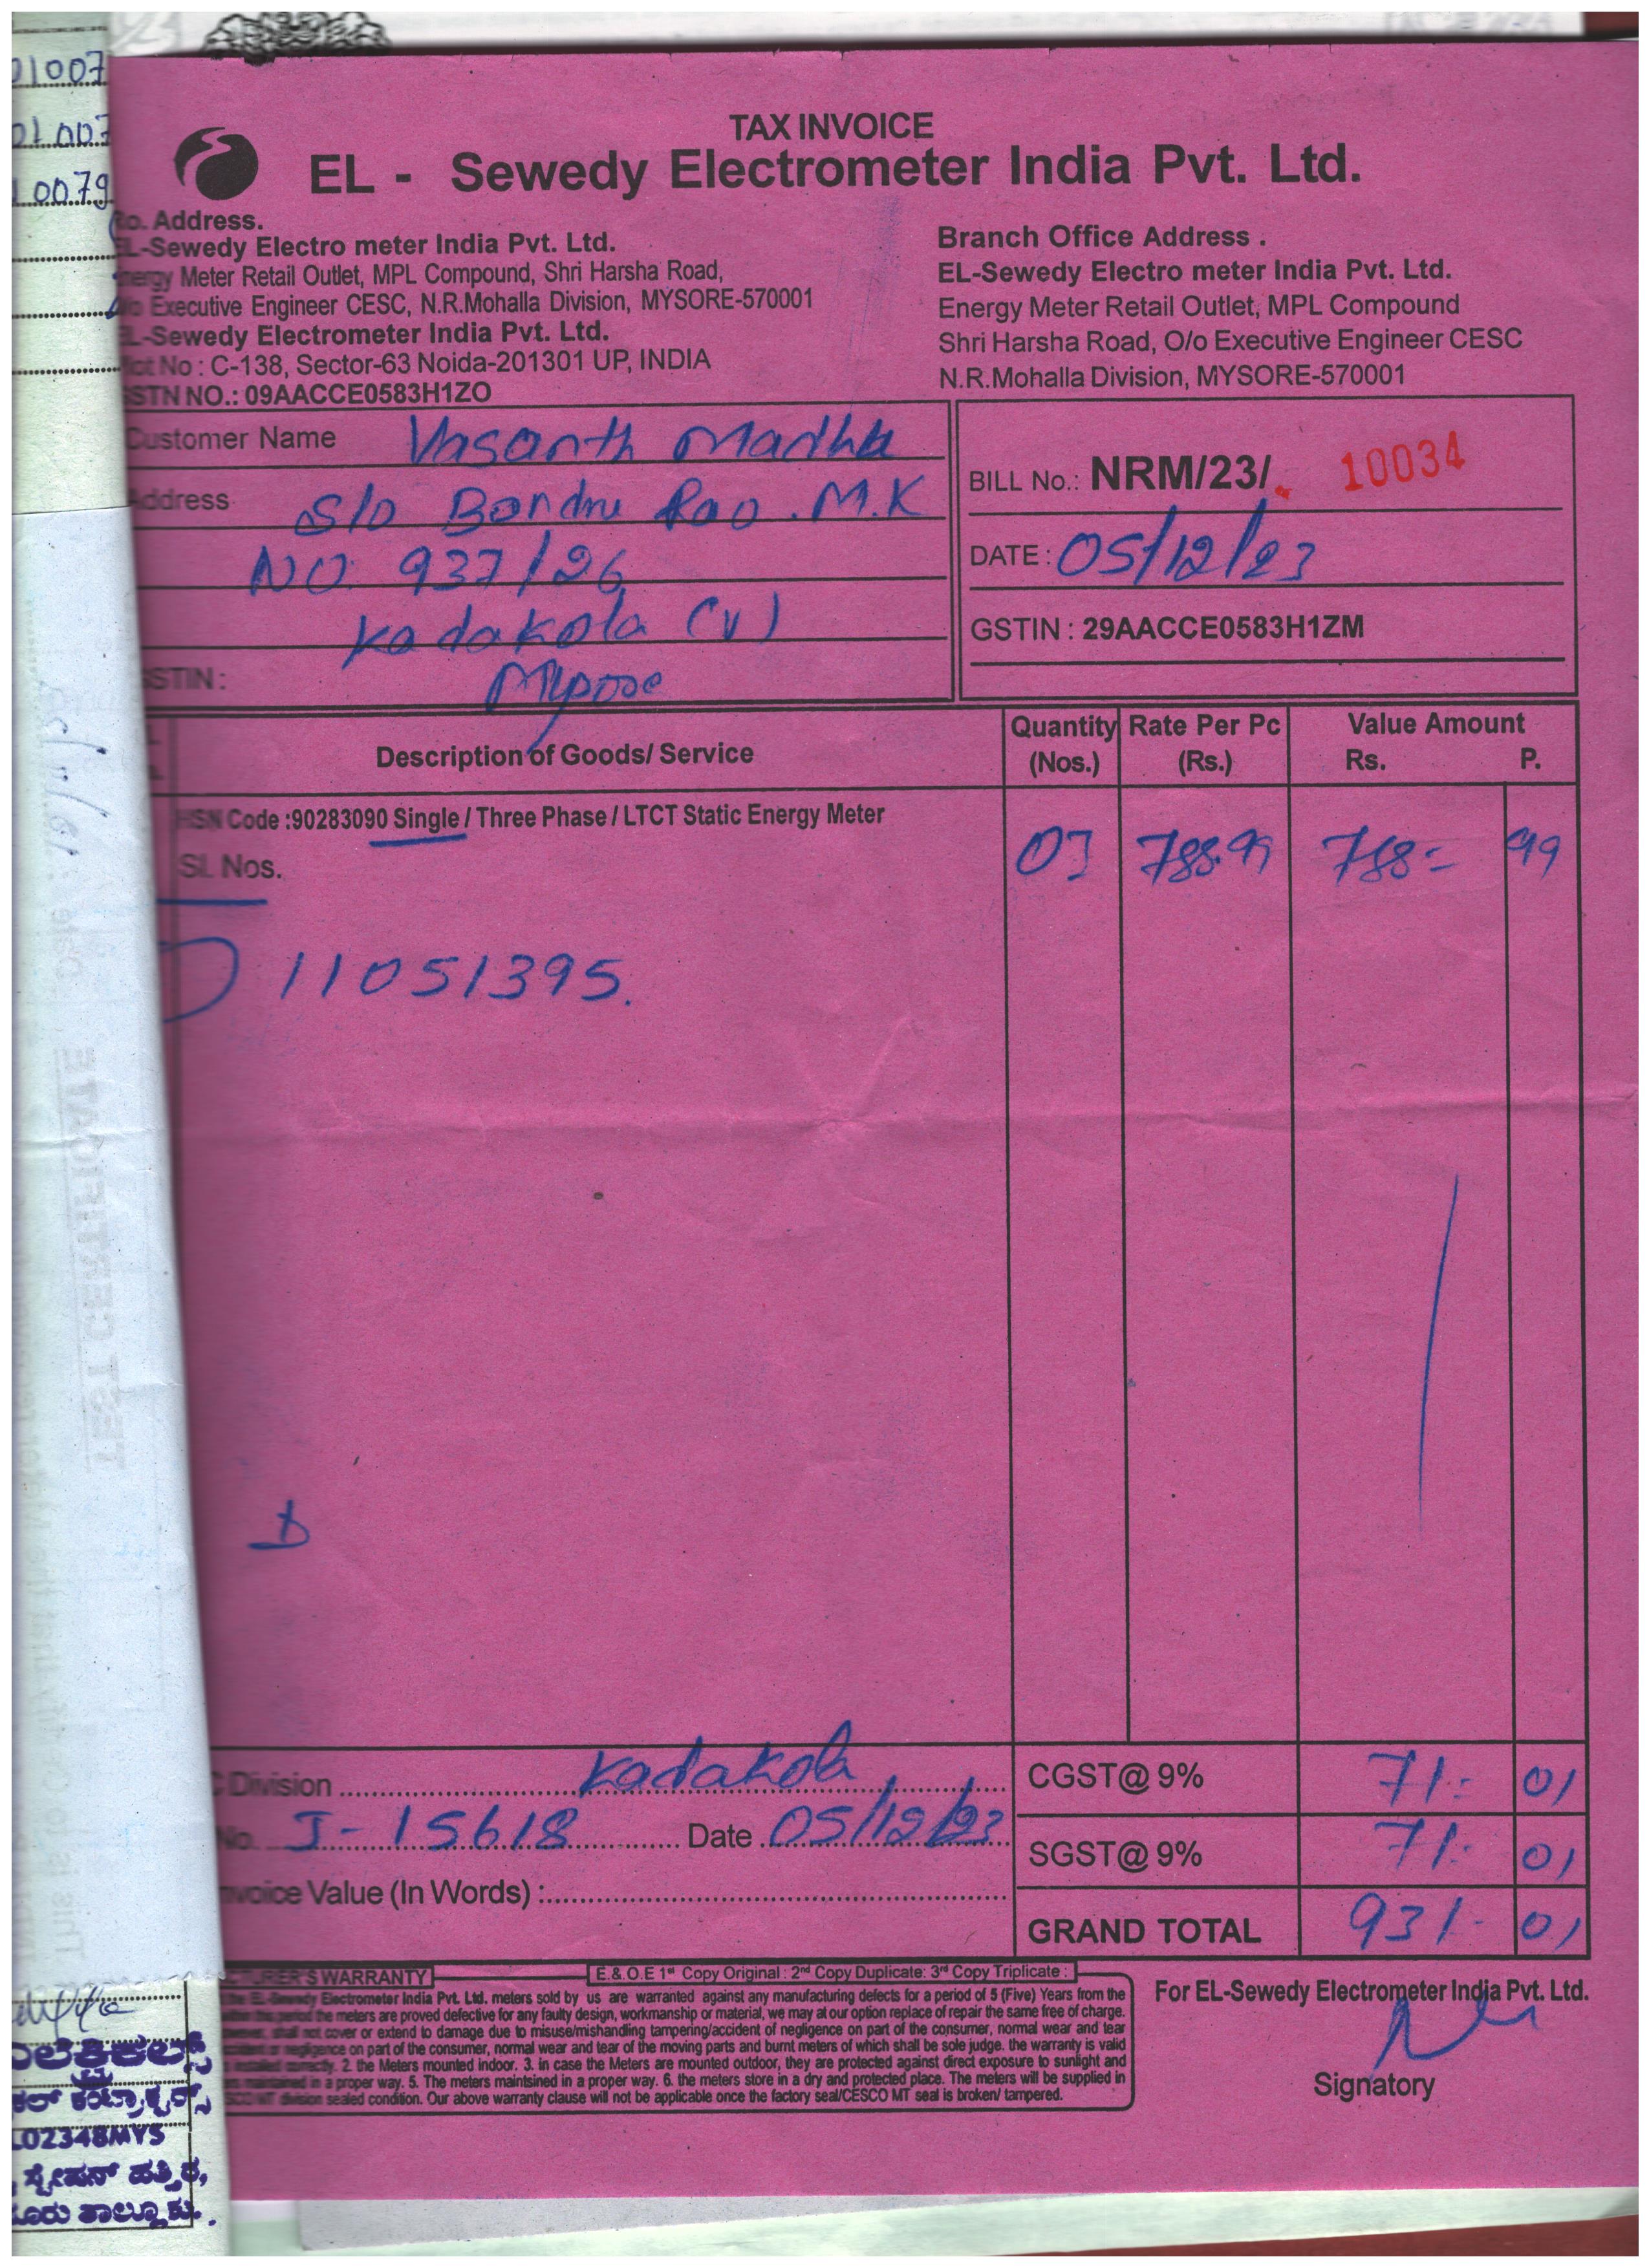 01007
01007
10079
TAX INVOICE
EL - Sewedy Electrometer India Pvt. Ltd.
Ro. Address.
EL-Sewedy Electro meter India Pvt. Ltd.
Energy Meter Retail Outlet, MPL Compound, Shri Harsha Road,
O/o Executive Engineer CESC, N.R.Mohalla Division, MYSORE-570001
EL-Sewedy Electrometer India Pvt. Ltd.
No : C-138, Sector-63 Noida-201301 UP, INDIA
GSTN NO.: 09AACCE0583H1ZO
Branch Office Address .
EL-Sewedy Electro meter India Pvt. Ltd.
Energy Meter Retail Outlet, MPL Compound
Shri Harsha Road, O/o Executive Engineer CESC
N.R.Mohalla Division, MYSORE-570001
Customer Name Vasanth Madha
Address S/o Bandu Rao . M.K
NO. 937/26
Kadakola (V)
GSTIN : Mysore
BILL No.: NRM/23/. 10034
DATE : 05/12/23
GSTIN : 29AACCE0583H1ZM
Description of Goods/ Service Quantity (Nos.) Rate Per Pc (Rs.) Value Amount Rs. P.
HSN Code :90283090 Single / Three Phase / LTCT Static Energy Meter
Sl. Nos. 01 788.99 788= 99
11051395.
TEST CERTIFICATE
Division Kadakola CGST@ 9% 71.- 01
No. J-15618 Date 05/12/23 SGST@ 9% 71.- 01
Invoice Value (In Words) :
GRAND TOTAL 931.- 01
CTURER'S WARRANTY E.&.O.E 1st Copy Original : 2nd Copy Duplicate: 3rd Copy Triplicate :
the EL-Sewedy Electrometer India Pvt. Ltd. meters sold by us are warranted against any manufacturing defects for a period of 5 (Five) Years from the
period the meters are proved defective for any faulty design, workmanship or material, we may at our option replace of repair the same free of charge.
shall not cover or extend to damage due to misuse/mishandling tampering/accident of negligence on part of the consumer, normal wear and tear
or negligence on part of the consumer, normal wear and tear of the moving parts and burnt meters of which shall be sole judge. the warranty is valid
installed correctly. 2. the Meters mounted indoor. 3. in case the Meters are mounted outdoor, they are protected against direct exposure to sunlight and
maintained in a proper way. 5. The meters maintsined in a proper way. 6. the meters store in a dry and protected place. The meters will be supplied in
MT division sealed condition. Our above warranty clause will not be applicable once the factory seal/CESCO MT seal is broken/ tampered.
For EL-Sewedy Electrometer India Pvt. Ltd.
Signatory
L02348MYS